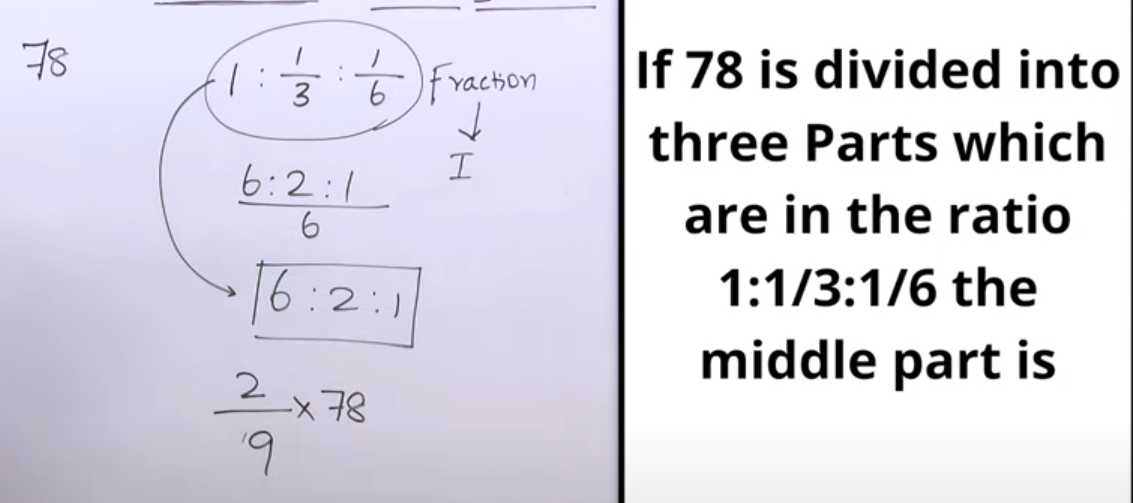 78
1 : 1/3 : 1/6 Fraction
↓
I
6 : 2 : 1
6
6 : 2 : 1
2/9 × 78
If 78 is divided into
three Parts which
are in the ratio
1:1/3:1/6 the
middle part is